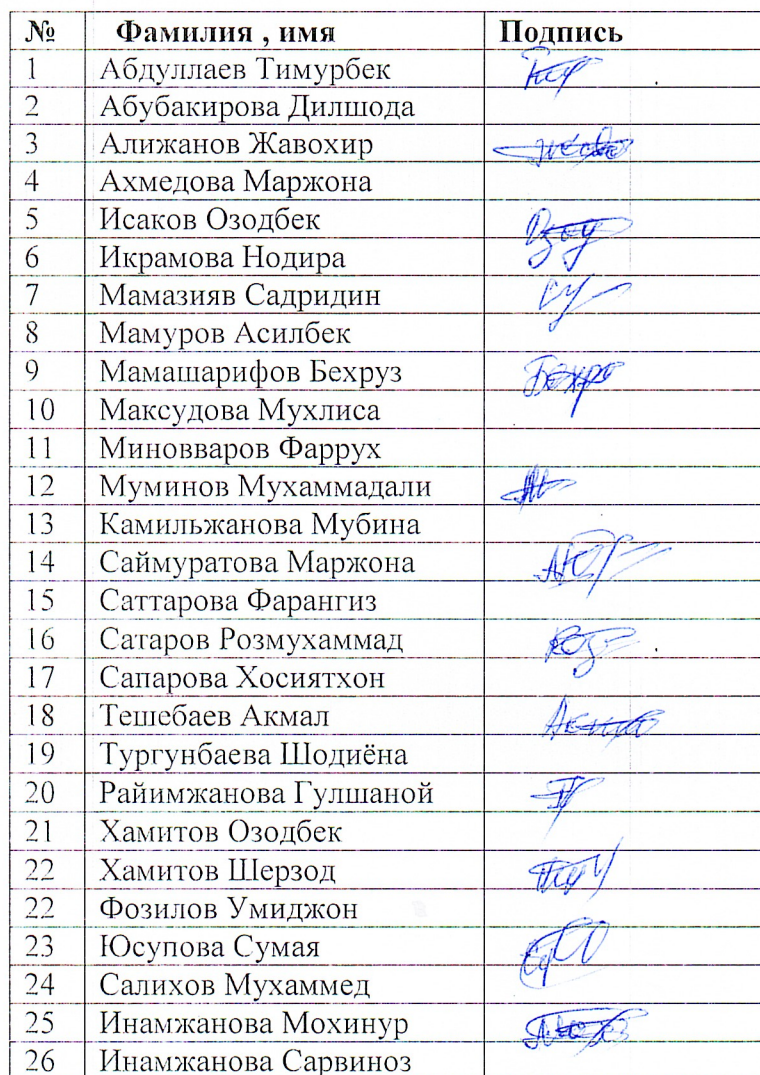 № Фамилия , имя Подпись
1 Абдуллаев Тимурбек
2 Абубакирова Дилшода
3 Алижанов Жавохир
4 Ахмедова Маржона
5 Исаков Озодбек
6 Икрамова Нодира
7 Мамазияв Садридин
8 Мамуров Асилбек
9 Мамашарифов Бехруз
10 Максудова Мухлиса
11 Миновваров Фаррух
12 Муминов Мухаммадали
13 Камильжанова Мубина
14 Саймуратова Маржона
15 Саттарова Фарангиз
16 Сатаров Розмухаммад
17 Сапарова Хосиятхон
18 Тешебаев Акмал
19 Тургунбаева Шодиёна
20 Райимжанова Гулшаной
21 Хамитов Озодбек
22 Хамитов Шерзод
22 Фозилов Умиджон
23 Юсупова Сумая
24 Салихов Мухаммед
25 Инамжанова Мохинур
26 Инамжанова Сарвиноз